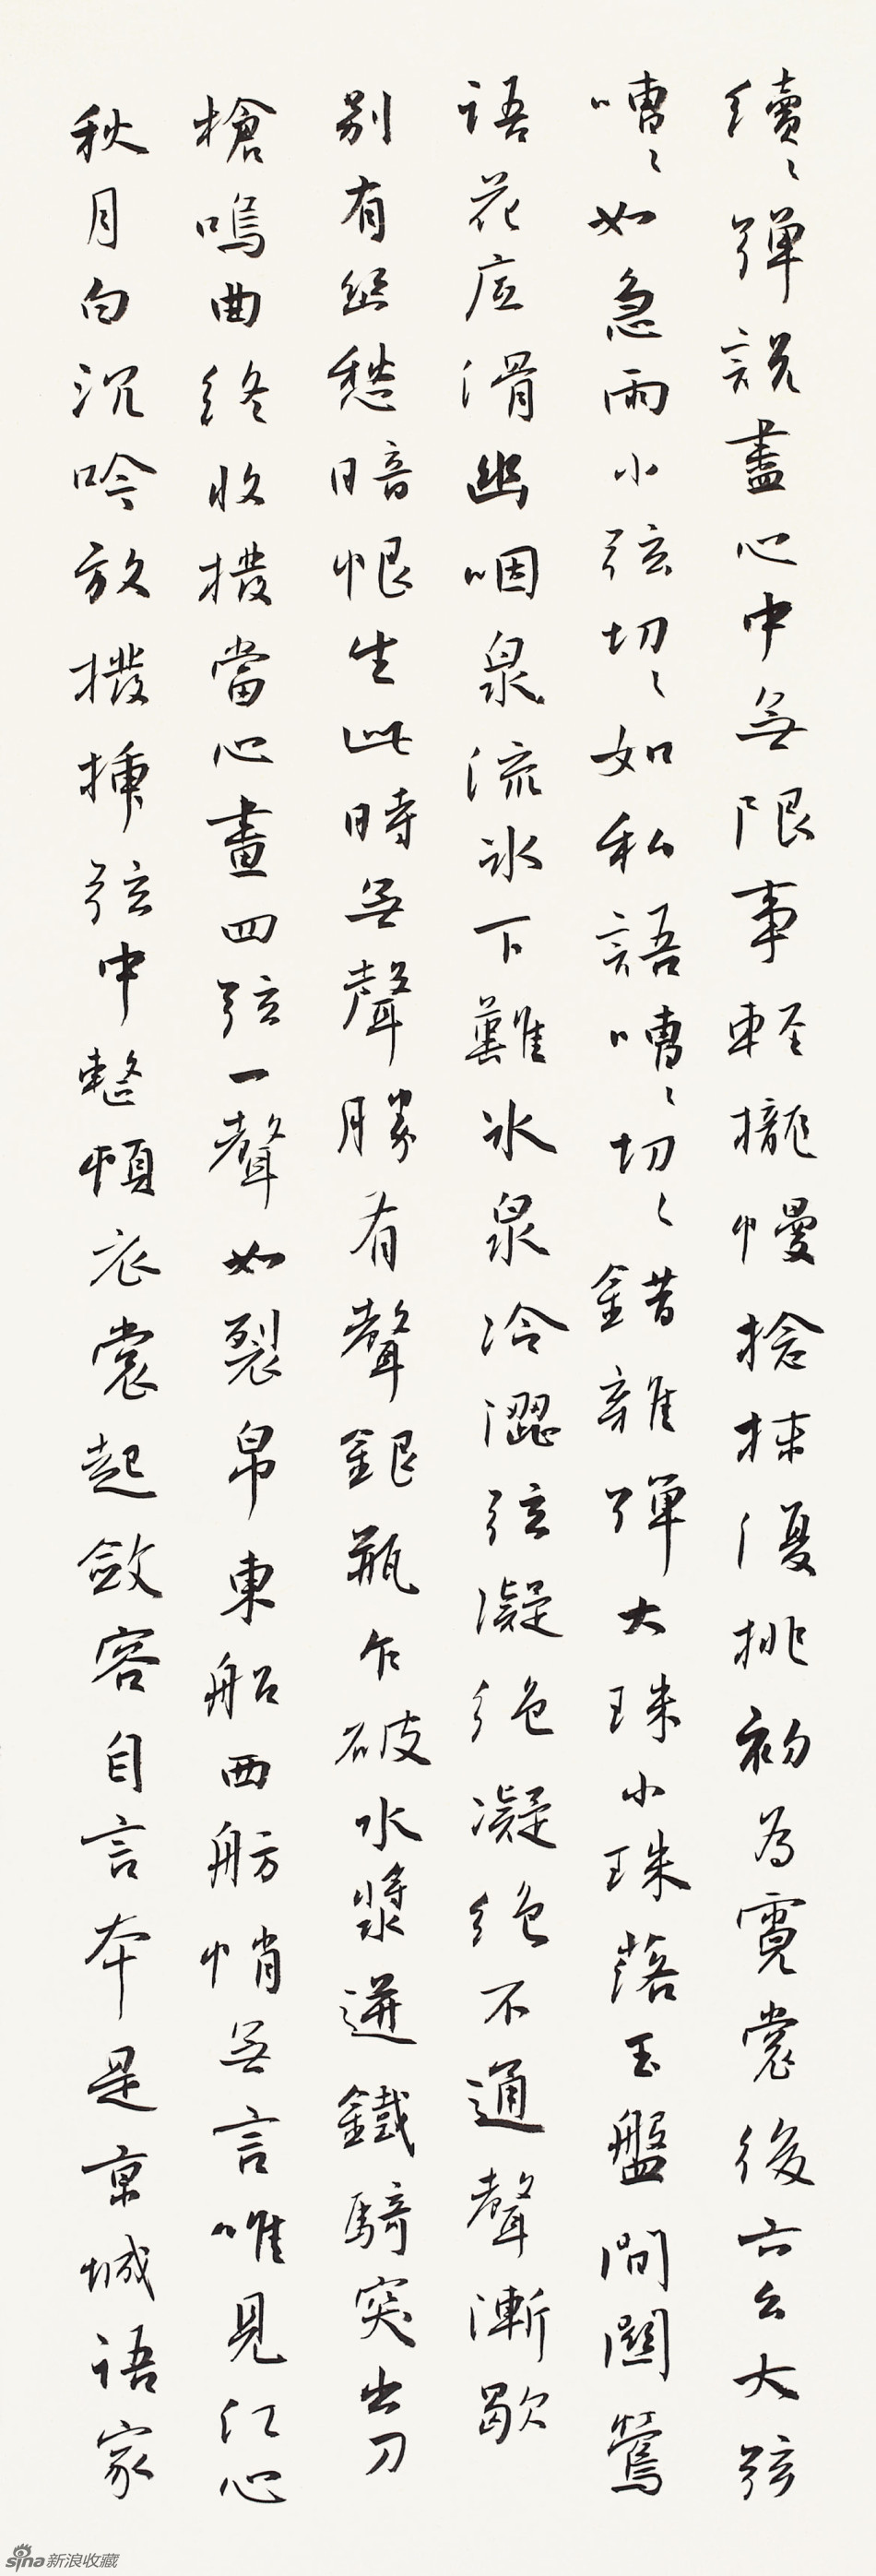 續〻彈說盡心中無限事輕攏慢捻抹復挑初為霓裳後六么大弦
嘈〻如急雨小弦切〻如私語嘈〻切〻錯雜彈大珠小珠落玉盤間關鶯
語花底滑幽咽泉流冰下難冰泉冷澀弦凝絕凝絕不通聲漸歇
別有幽愁暗恨生此時無聲勝有聲銀瓶乍破水漿迸鐵騎突出刀
槍鳴曲終收撥當心畫四弦一聲如裂帛東船西舫悄無言唯見江心
秋月白沉吟放撥插弦中整頓衣裳起斂容自言本是京城語家
sina新浪收藏